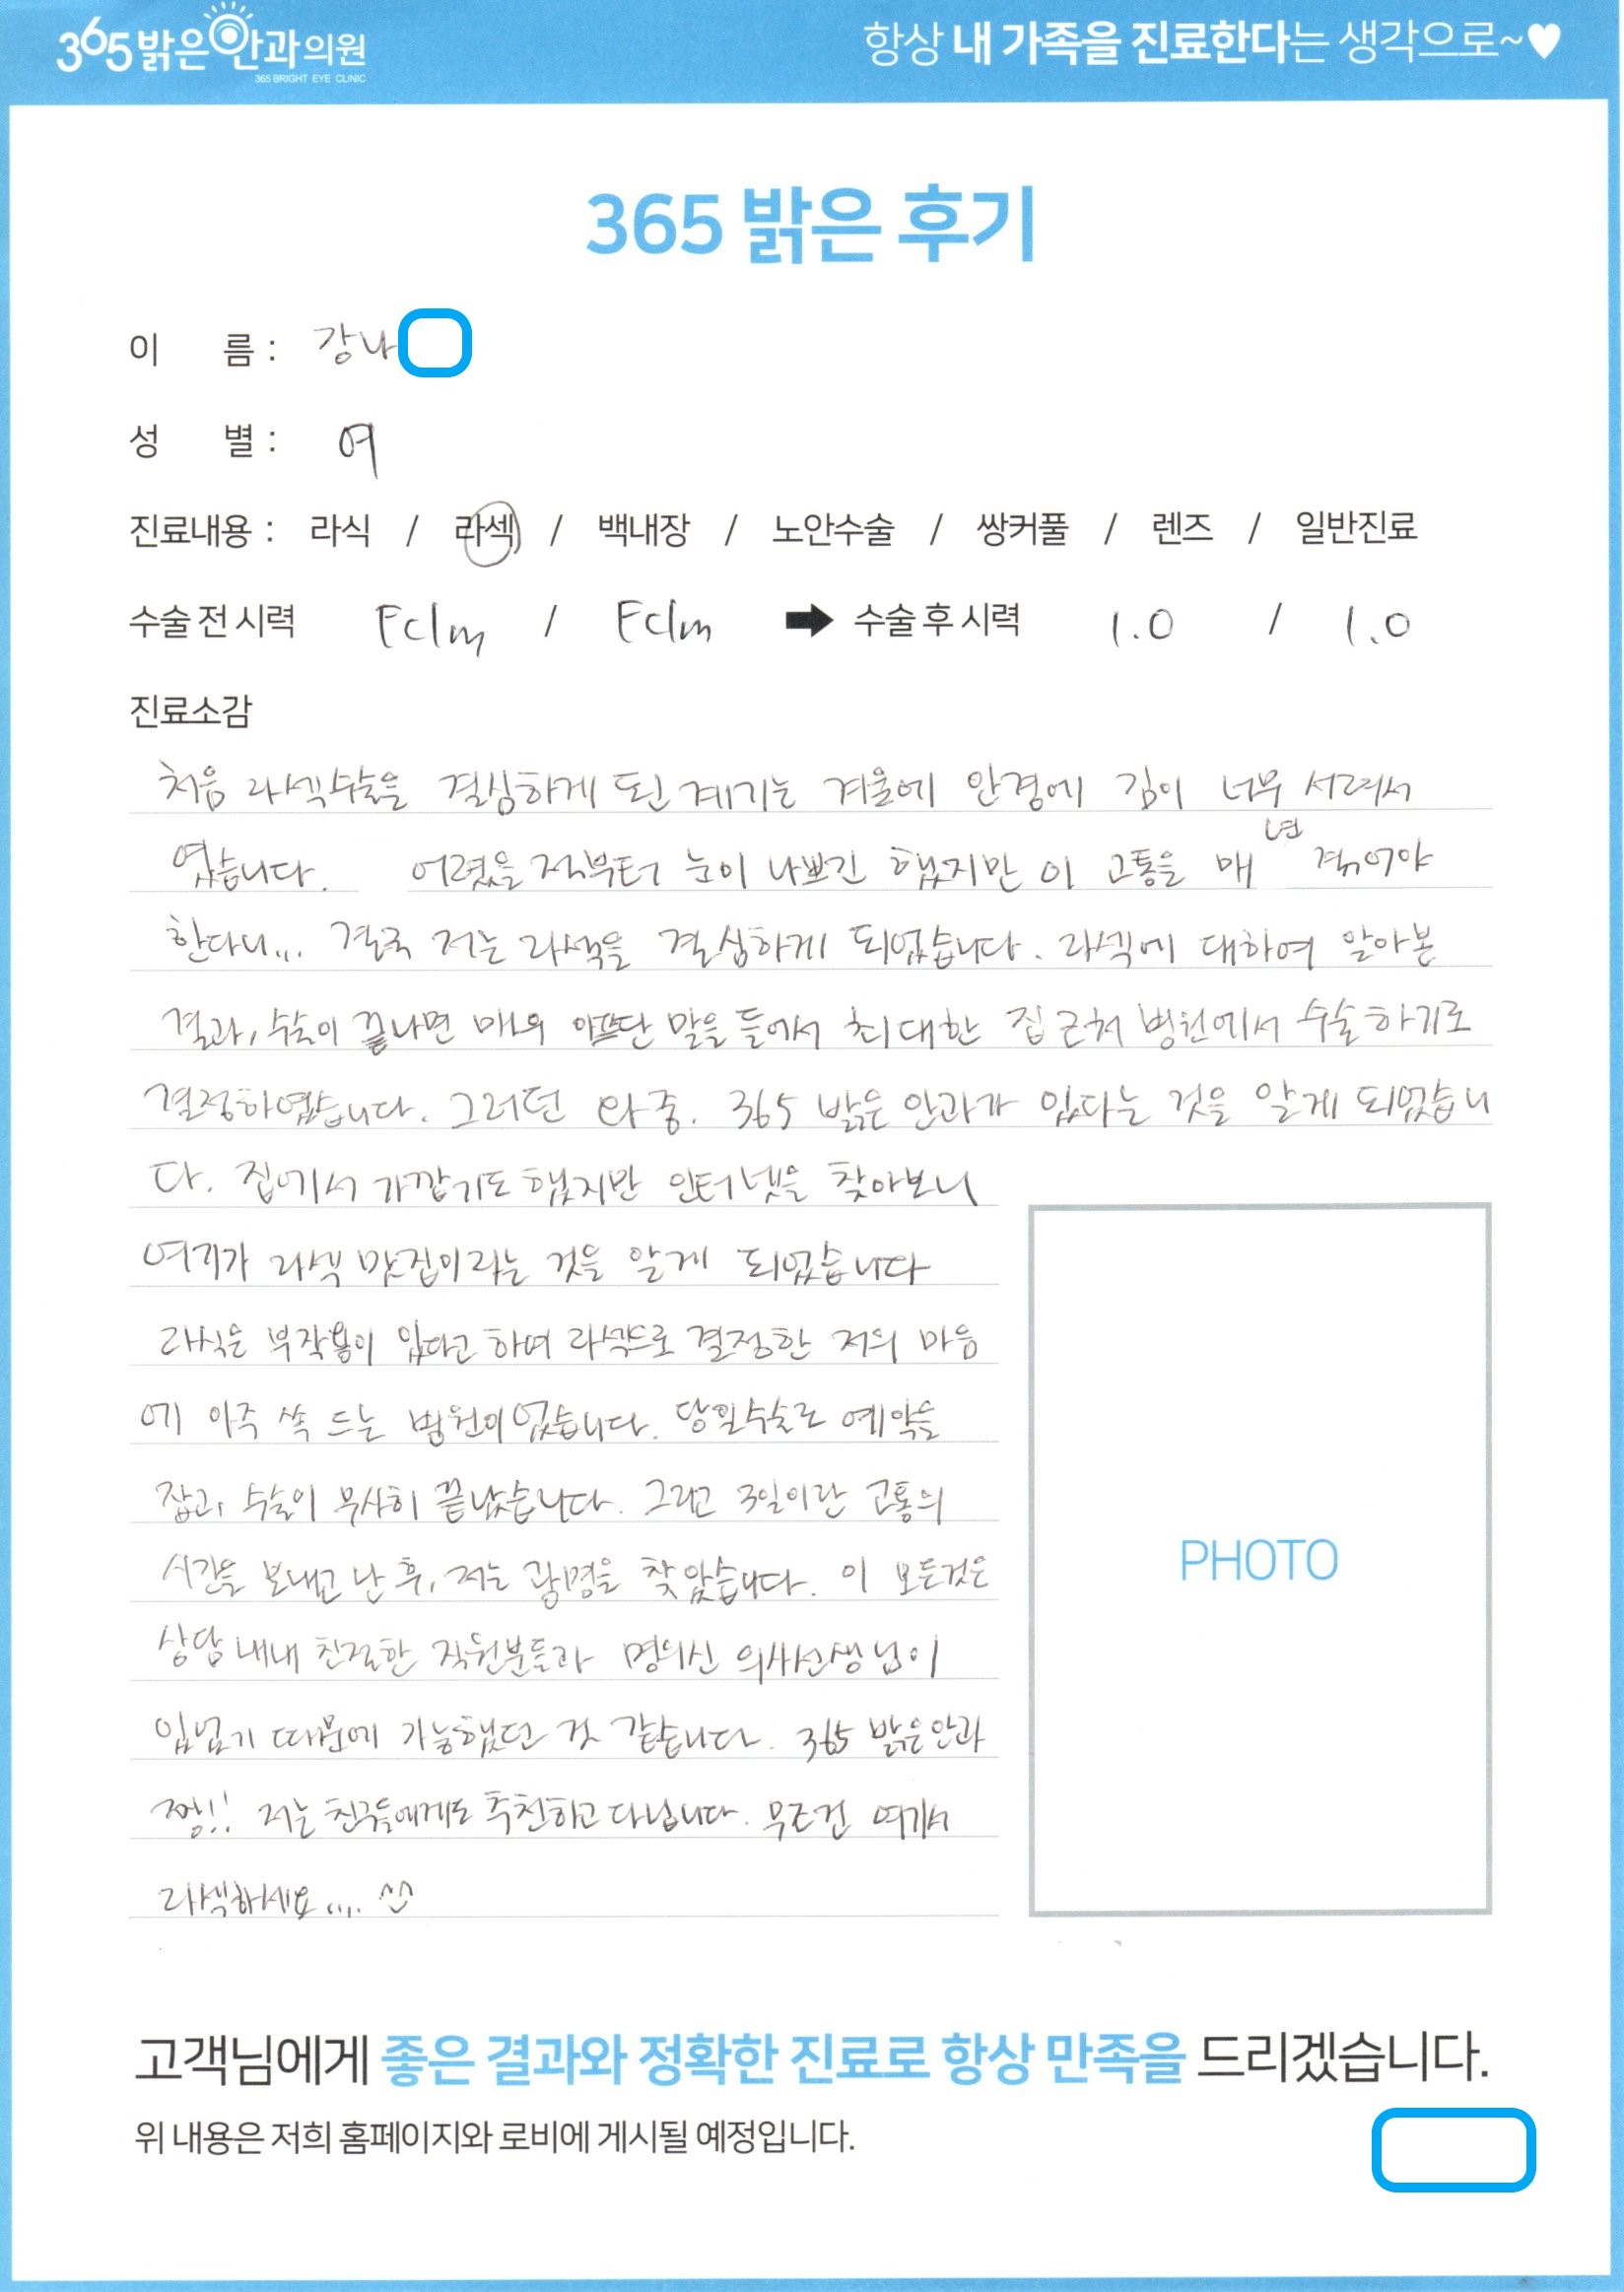 365밝은안과의원
365 BRIGHT EYE CLINIC
항상 내 가족을 진료한다는 생각으로~♥
365 밝은 후기
이 름 : 강나
성 별 : 여
진료내용 : 라식 / 라섹 / 백내장 / 노안수술 / 쌍커풀 / 렌즈 / 일반진료
수술 전 시력 Fc1m / Fc1m ➡ 수술 후 시력 1.0 / 1.0
진료소감
처음 라섹수술을 결심하게 된 계기는 겨울에 안경에 김이 너무 서려서
였습니다. 어렸을 적부터 눈이 나쁘긴 했지만 이 고통을 매년 겪어야
한다니... 결국 저는 라섹을 결심하게 되었습니다. 라섹에 대하여 알아본
결과, 수술이 끝나면 매우 아프단 말을 들어서 최대한 집 근처 병원에서 수술하기로
결정하였습니다. 그러던 와중. 365 밝은 안과가 있다는 것을 알게 되었습니
다. 집에서 가깝기도 했지만 인터넷을 찾아보니
여기가 라섹 맛집이라는 것을 알게 되었습니다
라식은 부작용이 있다고 하여 라섹으로 결정한 저의 마음
에 아주 쏙 드는 병원이었습니다. 당일수술로 예약을
잡고, 수술이 무사히 끝났습니다. 그리고 3일이란 고통의
시간을 보내고 난 후, 저는 광명을 찾았습니다. 이 모든것은
상담 내내 친절한 직원분들과 명의신 의사선생님이
있었기 때문에 가능했던 것 같습니다. 365 밝은안과
짱!! 저는 친구들에게도 추천하고 다닙니다. 무조건 여기서
라섹하세요.... ^^
PHOTO
고객님에게 좋은 결과와 정확한 진료로 항상 만족을 드리겠습니다.
위 내용은 저희 홈페이지와 로비에 게시될 예정입니다.